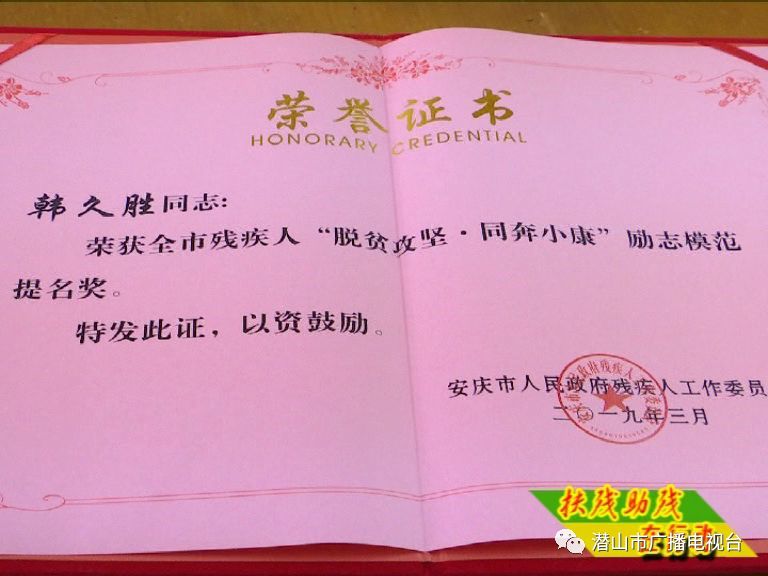 荣誉证书
HONORARY CREDENTIAL
韩久胜同志:
荣获全市残疾人“脱贫攻坚·同奔小康”励志模范
提名奖。
特发此证，以资鼓励。
安庆市人民政府残疾人工作委员
二〇一九年三月
扶残助残
在行动
潜山市广播电视台